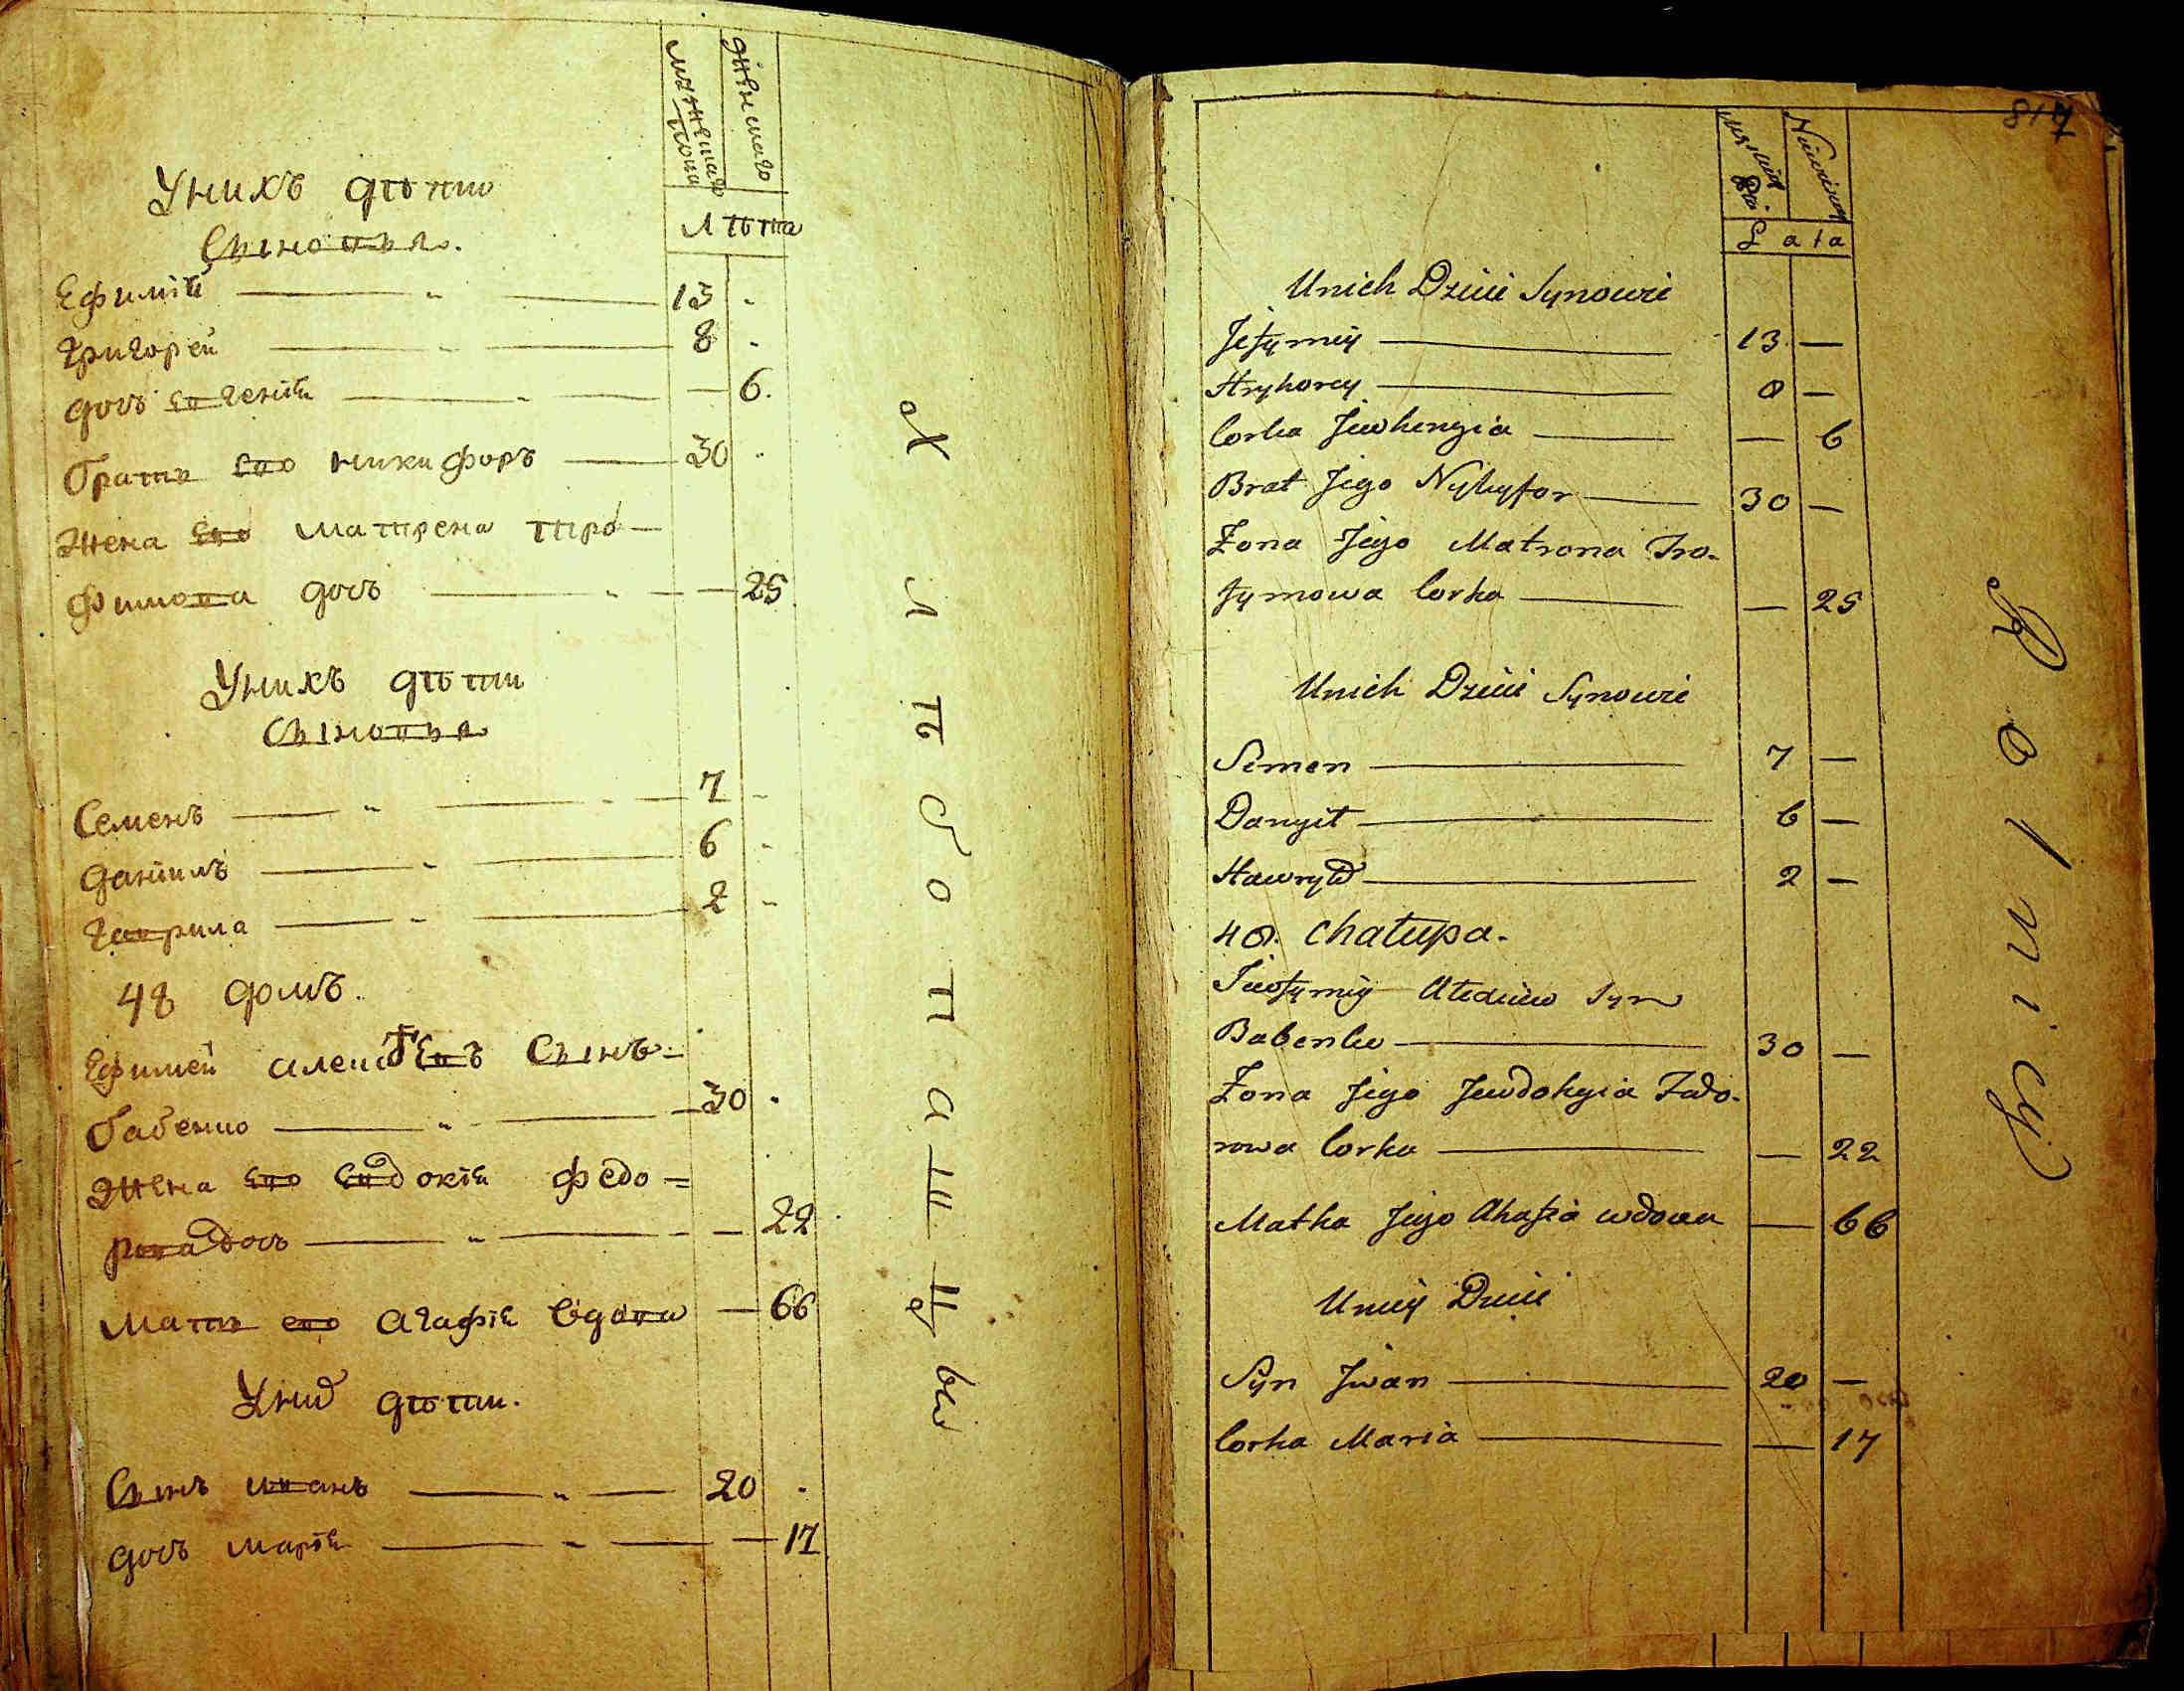 мужескаго
пола
женскаго
Лѣта
У нихъ дѣти
Сыновья.
Ефимій — 13
Григорей — 8
дочь Евгенія — 6.
братъ его Никифоръ — 30
Жена его Матрена Тро-
фимова дочь — 25
У нихъ дѣти
Сыновья
Семенъ — 7
Даніилъ — 6
Гаврила — 2
48 домъ.
Ефимей Алексѣевъ Сынъ
Бабенко — 30
Жена его Евдокія Федо=
рова дочь — 22
Мать его Агафія вдова — 66
У ней дѣти.
Сынъ Иванъ — 20
дочь Марія — 17
Хлѣбопашцы
817
Lata
Unich Dzieci Synowie
Jefymiy — 13 —
Hryhorey — 8 —
Corka Jewhenyia — 6
Brat Jego Nykyfor — 30 —
Żona Jego Matrona Tro-
fymowa Corka — 25
Unich Dzieci Synowie
Semen — 7 —
Danyił — 6 —
Hawryło — 2 —
48. Chałupa.
Jewfymiy Syn
Babenko — 30 —
Żona Jego Jewdokyia Fedo-
rowa Corka — 22
Matka Jego Ahafia wdowa — 66
Uniey Dzieci
Syn Jwan — 20 —
Corka Maria — 17
Rolnicy